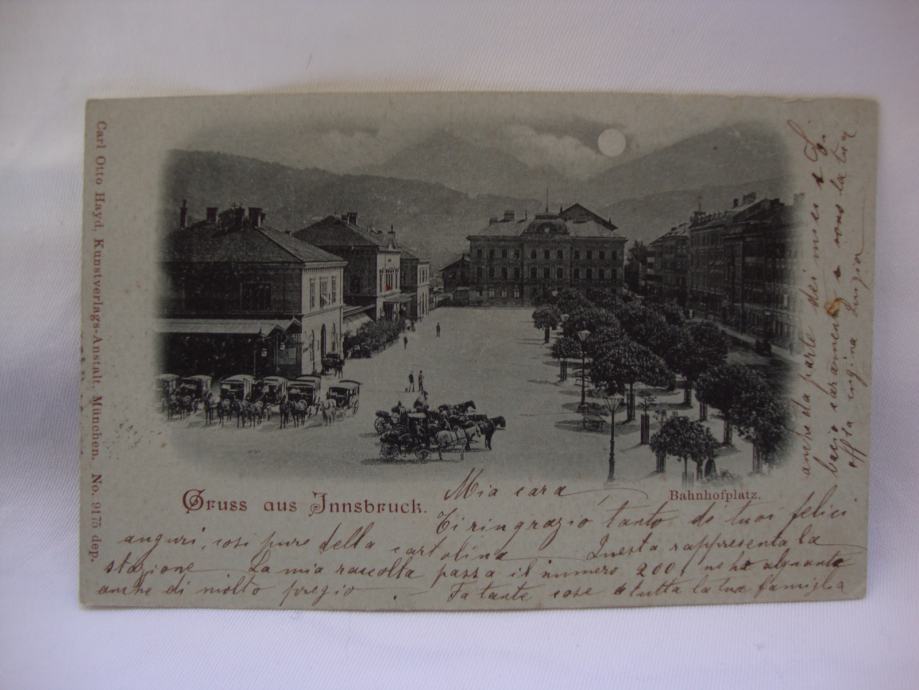 Carl Otto Hayd, Kunstverlags-Anstalt, München. No. 9175 dep.
Gruss aus Innsbruck.
Bahnhofplatz.
Mia cara
Ti ringrazio tanto de tuoi felici
auguri, cosi pure della cartolina Questa rappresenta la
stazione La mia raccolta passa il numero 200, ne ho alquante
anche di molto pregio. Fa tante cose a tutta la tua famiglia
anche da parte dei miei e
bacio caramente sono la tua
affta cugina Luigia